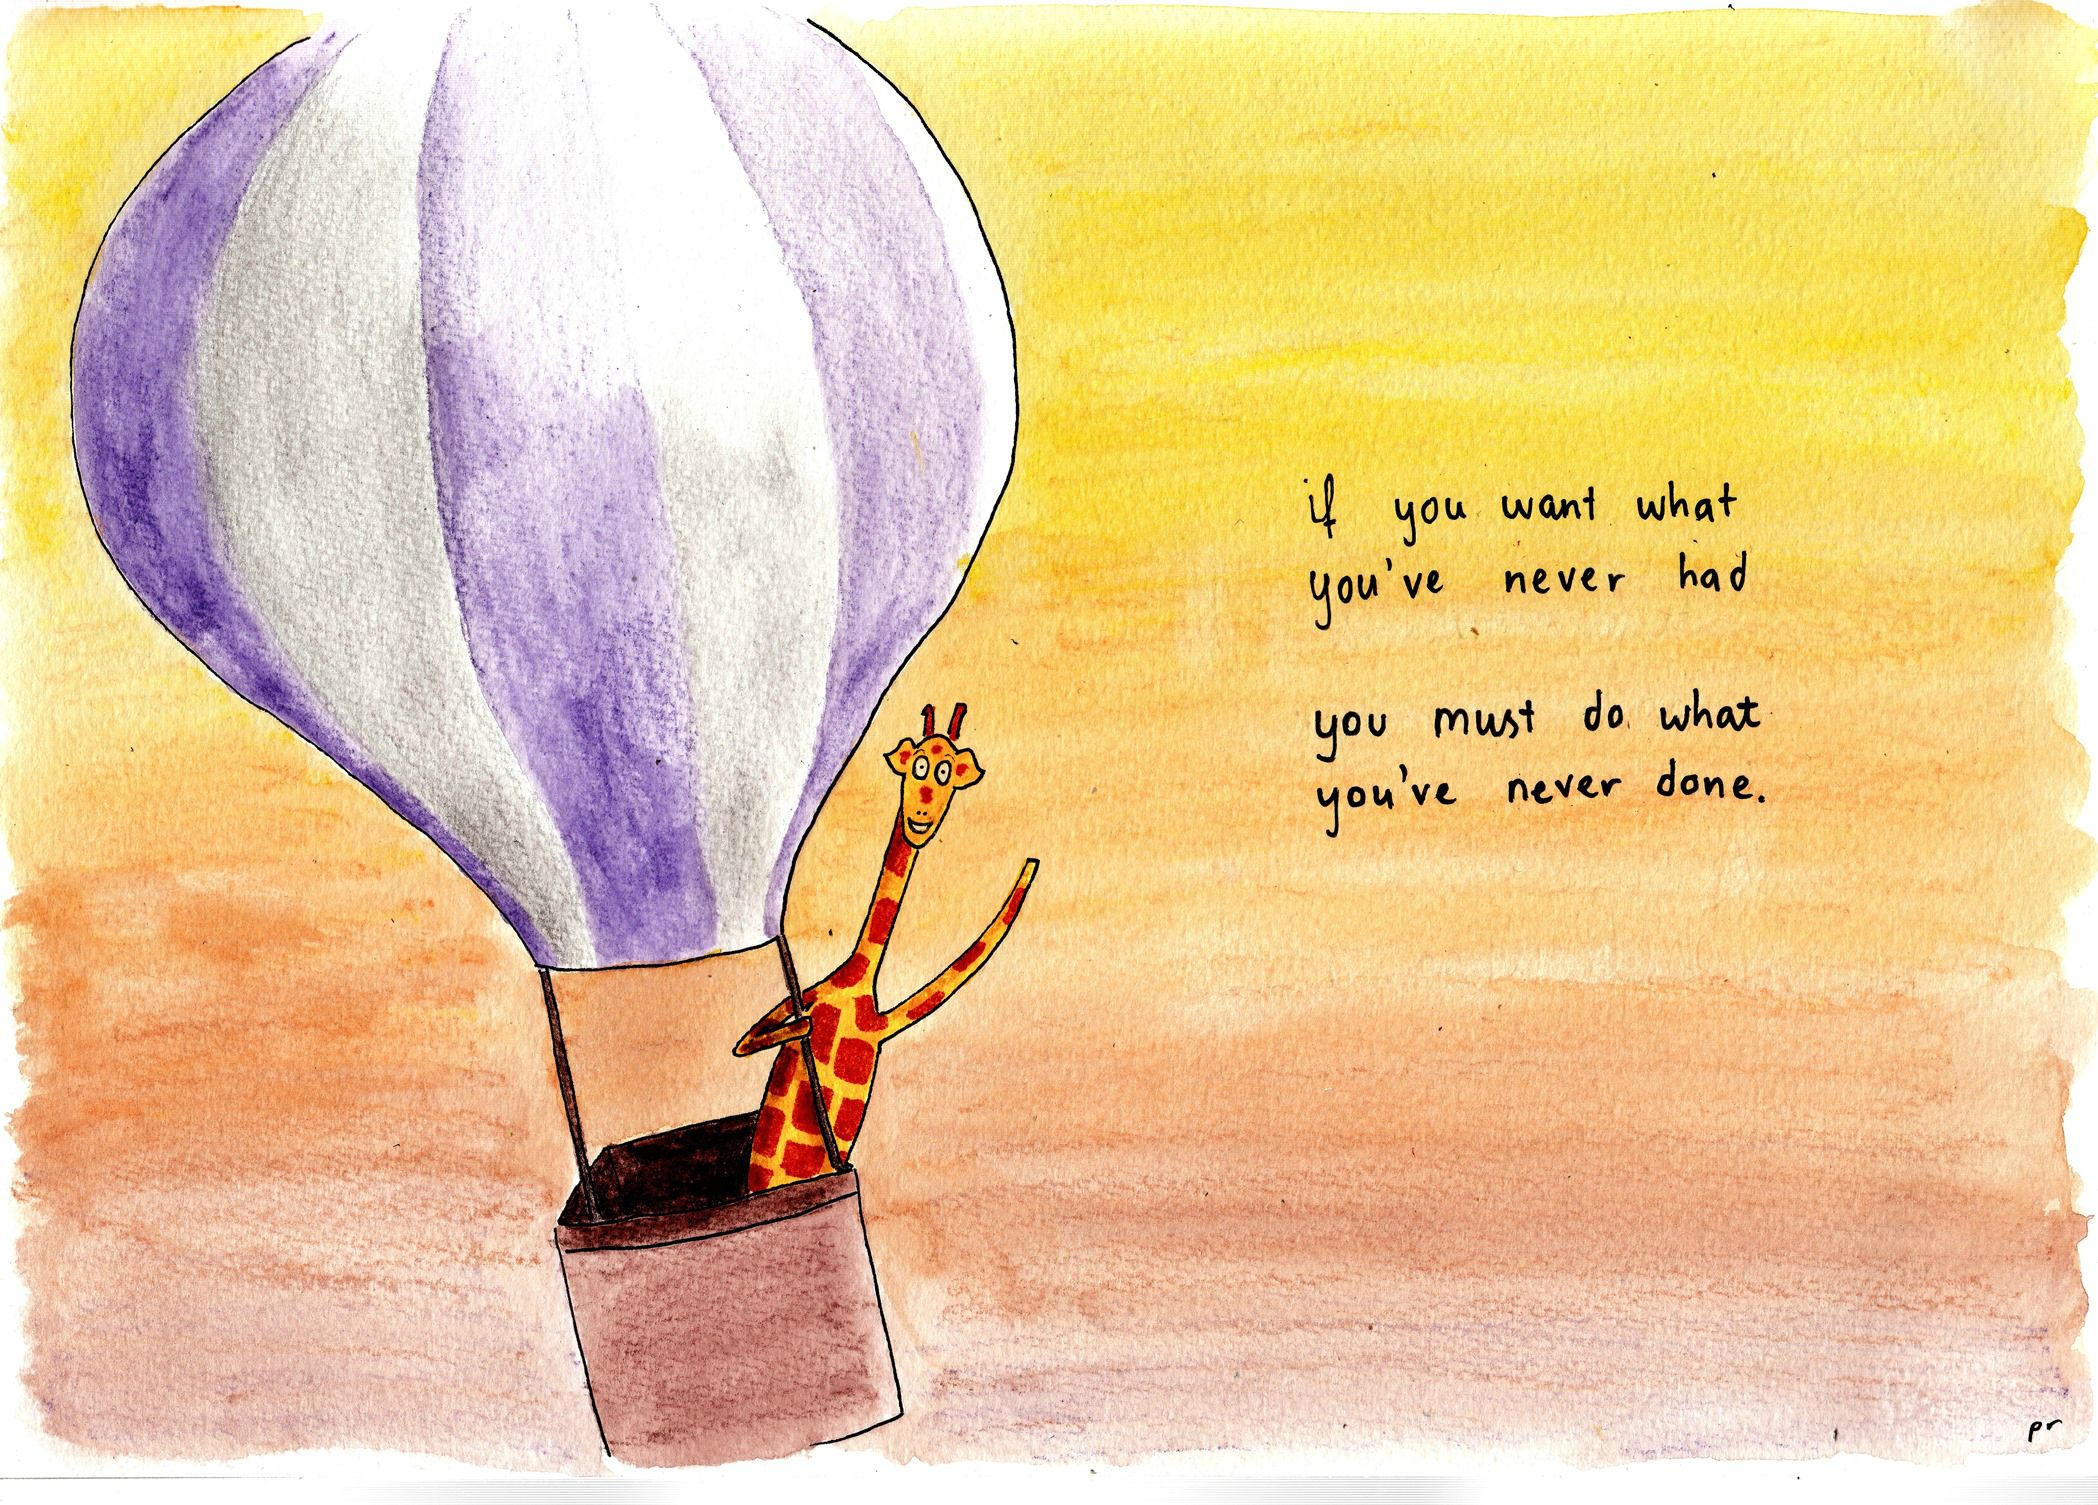 if you want what
you've never had
you must do what
you've never done.
pr